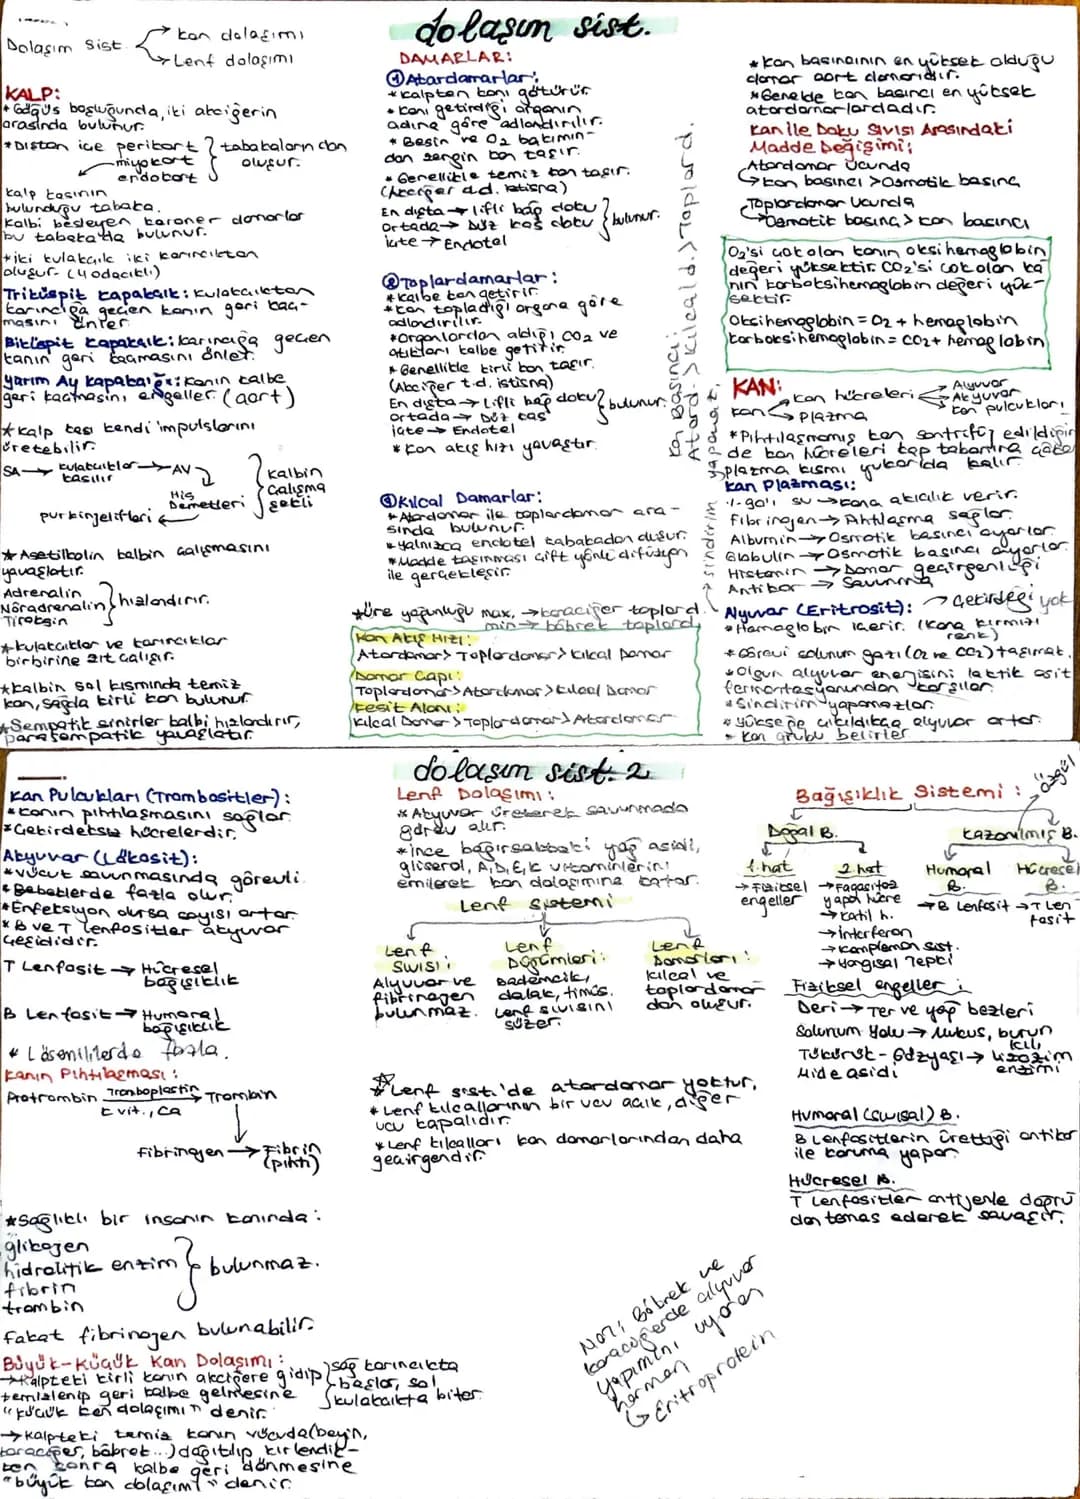 dolaşım sist.
Dolaşım sist
kan dolaşımı
Lenf dolaşımı
KALP:
* Göğüs boşluğunda, iki akciğerin
arasında bulunur.
* Dıştan içe perikart
miyokart
endokart
tabakalarından
oluşur.
kalp kasının
bulunduğu tabaka.
kalbi besleyen koroner damarlar
bu tabakada bulunur.
* iki kulakçık iki karıncıktan
oluşur (4 odacıklı)
Triküspit kapakçık: kulakçıktan
karıncığa geçen kanın geri kaç-
masını önler.
Biküspit kapakçık: karıncığa geçen
kanın geri kaçmasını önler.
Yarım Ay kapakçığı: kanın kalbe
geri kaçmasını engeller. (aort)
* kalp kası kendi impulslarını
üretebilir.
SA → kulakçıklar kasılır → AV
His
Demetleri
purkinje lifleri
kalbin
çalışma
şekli
* Asetilkolin kalbin çalışmasını
yavaşlatır.
Adrenalin
Noradrenalin
Tiroksin
hızlandırır.
* kulakçıklar ve karıncıklar
birbirine zıt çalışır.
* kalbin sol kısmında temiz
kan, sağda kirli kan bulunur.
* Sempatik sinirler kalbi hızlandırır,
parasempatik yavaşlatır.
DAMARLAR:
① Atardamarlar:
* kalpten kanı götürür.
* kanı getirdiği organın
adına göre adlandırılır.
* Besin ve O2 bakımın-
dan zengin kan taşır.
* Genellikle temiz kan taşır.
(Akciğer a.d. istisna)
En dışta → lifli bağ doku
ortada → Düz kas doku
içte → Endotel
bulunur.
② Toplardamarlar:
* kalbe kan getirir.
* kan topladığı organa göre
adlandırılır.
* Organlardan aldığı CO2 ve
atıkları kalbe getirir.
* Genellikle kirli kan taşır.
(Akciğer t.d. istisna)
En dışta → Lifli bağ doku
ortada → Düz kas
içte → Endotel
bulunur.
* kan akış hızı yavaştır.
Kan Basıncı:
Atard. > kılcal d. > Toplard.
③ Kılcal Damarlar:
* Atardamar ile toplardamar ara-
sında bulunur.
* yalnızca endotel tabakadan oluşur.
* Madde taşınması çift yönlü difüzyon
ile gerçekleşir.
* Üre yoğunluğu max. → karaciğer toplard.
min → böbrek toplard.
sindirim yapmaz.
Kan Akış Hızı:
Atardamar > Toplardamar > kılcal Damar
Damar Çapı:
Toplardamar > Atardamar > kılcal Damar
Kesit Alanı:
kılcal Damar > Toplardamar > Atardamar
* kan basıncının en yüksek olduğu
damar aort damarıdır.
* Genelde kan basıncı en yüksek
atardamarlardadır.
Kan ile Doku Sıvısı Arasındaki
Madde Değişimi:
Atardamar Ucunda
kan basıncı > Osmotik basınç
Toplardamar Ucunda
Osmotik basınç > kan basıncı
O2'si çok olan kanın oksihemoglobin
değeri yüksektir. CO2'si çok olan ka-
nın karboksihemoglobin değeri yük-
sektir.
Oksihemoglobin = O2 + hemoglobin
karboksihemoglobin = CO2 + hemoglobin
KAN:
kan
kan hücreleri
Plazma
Alyuvar
Akyuvar
kan pulcukları
* Pıhtılaşmamış kan santrifüj edildiğin-
de kan hücreleri kap tabanına çöker
plazma kısmı yukarıda kalır.
Kan Plazması:
%90'ı su → kana akıcılık verir.
Fibrinojen → Pıhtılaşma sağlar.
Albumin → Osmotik basıncı ayarlar.
Globulin → Osmotik basıncı ayarlar.
Histamin → Damar geçirgenliği
Antikor → Savunma
Alyuvar (Eritrosit): → Çekirdeği yok
* Hemoglobin içerir. (kana kırmızı
renk)
* Görevi solunum gazı (O2 ve CO2) taşımak.
* Olgun alyuvar enerjisini laktik asit
fermantasyonundan karşılar.
* Sindirim yapamazlar.
* Yükseğe çıkıldıkça alyuvar artar.
* Kan grubu belirler
dolaşım sist. 2
Kan Pulcukları (Trombositler):
* kanın pıhtılaşmasını sağlar.
* Çekirdeksiz hücrelerdir.
Akyuvar (Lökosit):
* vücut savunmasında görevli.
* Bebeklerde fazla olur.
* Enfeksiyon olursa sayısı artar.
* B ve T lenfositler akyuvar
çeşididir.
T Lenfosit → Hücresel
bağışıklık
B Lenfosit → Humoral
bağışıklık
* Lösemililerde fazla.
Kanın Pıhtılaşması:
Protrombin Tromboplastin → Trombin
K vit., Ca
Fibrinojen → Fibrin
(pıhtı)
* Sağlıklı bir insanın kanında:
glikojen
hidrolitik enzim
fibrin
trombin
bulunmaz.
Fakat fibrinojen bulunabilir.
Büyük-Küçük Kan Dolaşımı:
→ Kalpteki kirli kanın akciğere gidip
temizlenip geri kalbe gelmesine
"küçük kan dolaşımı" denir.
sağ karıncıkta
başlar, sol
kulakçıkta biter.
→ kalpteki temiz kanın vücuda (beyin,
karaciğer, böbrek...) dağıtılıp kirlendik-
ten sonra kalbe geri dönmesine
"büyük kan dolaşımı" denir.
Lenf Dolaşımı:
* Akyuvar üreterek savunmada
görev alır.
* ince bağırsaktaki yağ asidi,
gliserol, A,D,E,K vitaminlerini
emilerek kan dolaşımına katar.
Lenf sistemi
Lenf
sıvısı:
Alyuvar ve
fibrinojen
bulunmaz.
Lenf
Düğümleri:
Bademcik,
dalak, timüs.
Lenf sıvısını
süzer.
Lenf
Damarları:
kılcal ve
toplardamar
dan oluşur.
* Lenf sist.'de atardamar yoktur,
* Lenf kılcallarının bir ucu açık, diğer
ucu kapalıdır.
* Lenf kılcalları kan damarlarından daha
geçirgendir.
NOT: Böbrek ve
karaciğerde alyuvar
yapımını uyaran
hormon
Eritroprotein
Bağışıklık Sistemi:
özgül
Doğal B.
kazanılmış B.
1. hat
→ Fiziksel
engeller
2. hat
→ Fagositoz
yapan hücre
→ katil h.
→ interferon
→ kompleman sist.
→ Yangısal Tepki
Humoral
B.
→ B lenfosit
Hücresel
B.
→ T Len
fosit
Fiziksel engeller:
Deri → Ter ve yağ bezleri
Solunum Yolu → Mukus, burun
kılı
Tükürük - Gözyaşı → lizozim
enzimi
Mide asidi
Humoral (sıvısal) B.
B Lenfositlerin ürettiği antikor
ile koruma yapar.
Hücresel B.
T Lenfositler antijenle doğru
dan temas ederek savaşır.